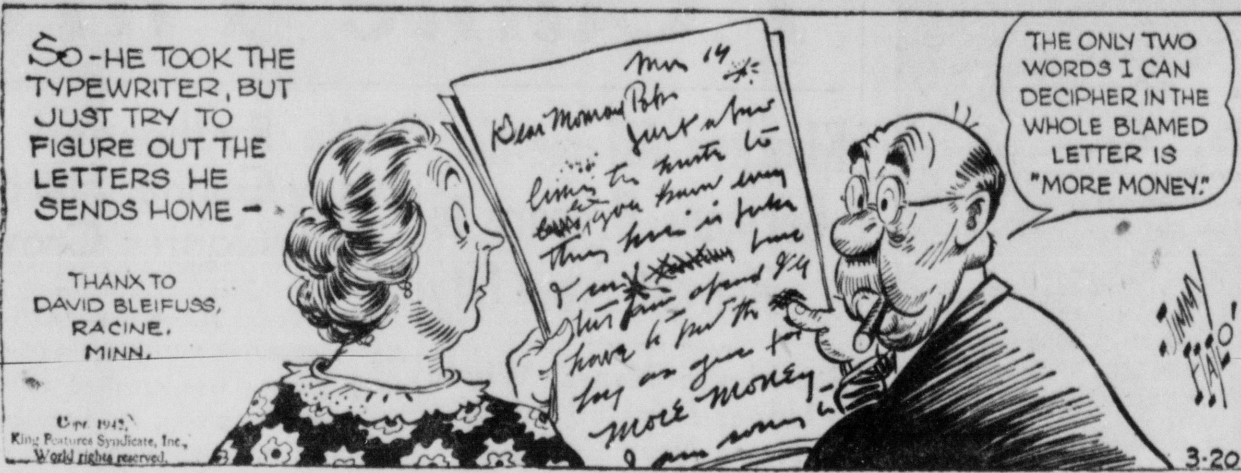 SO-HE TOOK THE
TYPEWRITER, BUT
JUST TRY TO
FIGURE OUT THE
LETTERS HE
SENDS HOME-
THANX TO
DAVID BLEIFUSS,
RACINE,
MINN.
Copr. 1942,
King Features Syndicate, Inc.,
World rights reserved.
Dear Mom and
Just a few
lines to
you know every
thing here is
I
afraid I'll
have to put the
on you for
MORE MONEY-
I am sorry
THE ONLY TWO
WORDS I CAN
DECIPHER IN THE
WHOLE BLAMED
LETTER IS
"MORE MONEY."
JIMMY
HATLO!
3-20